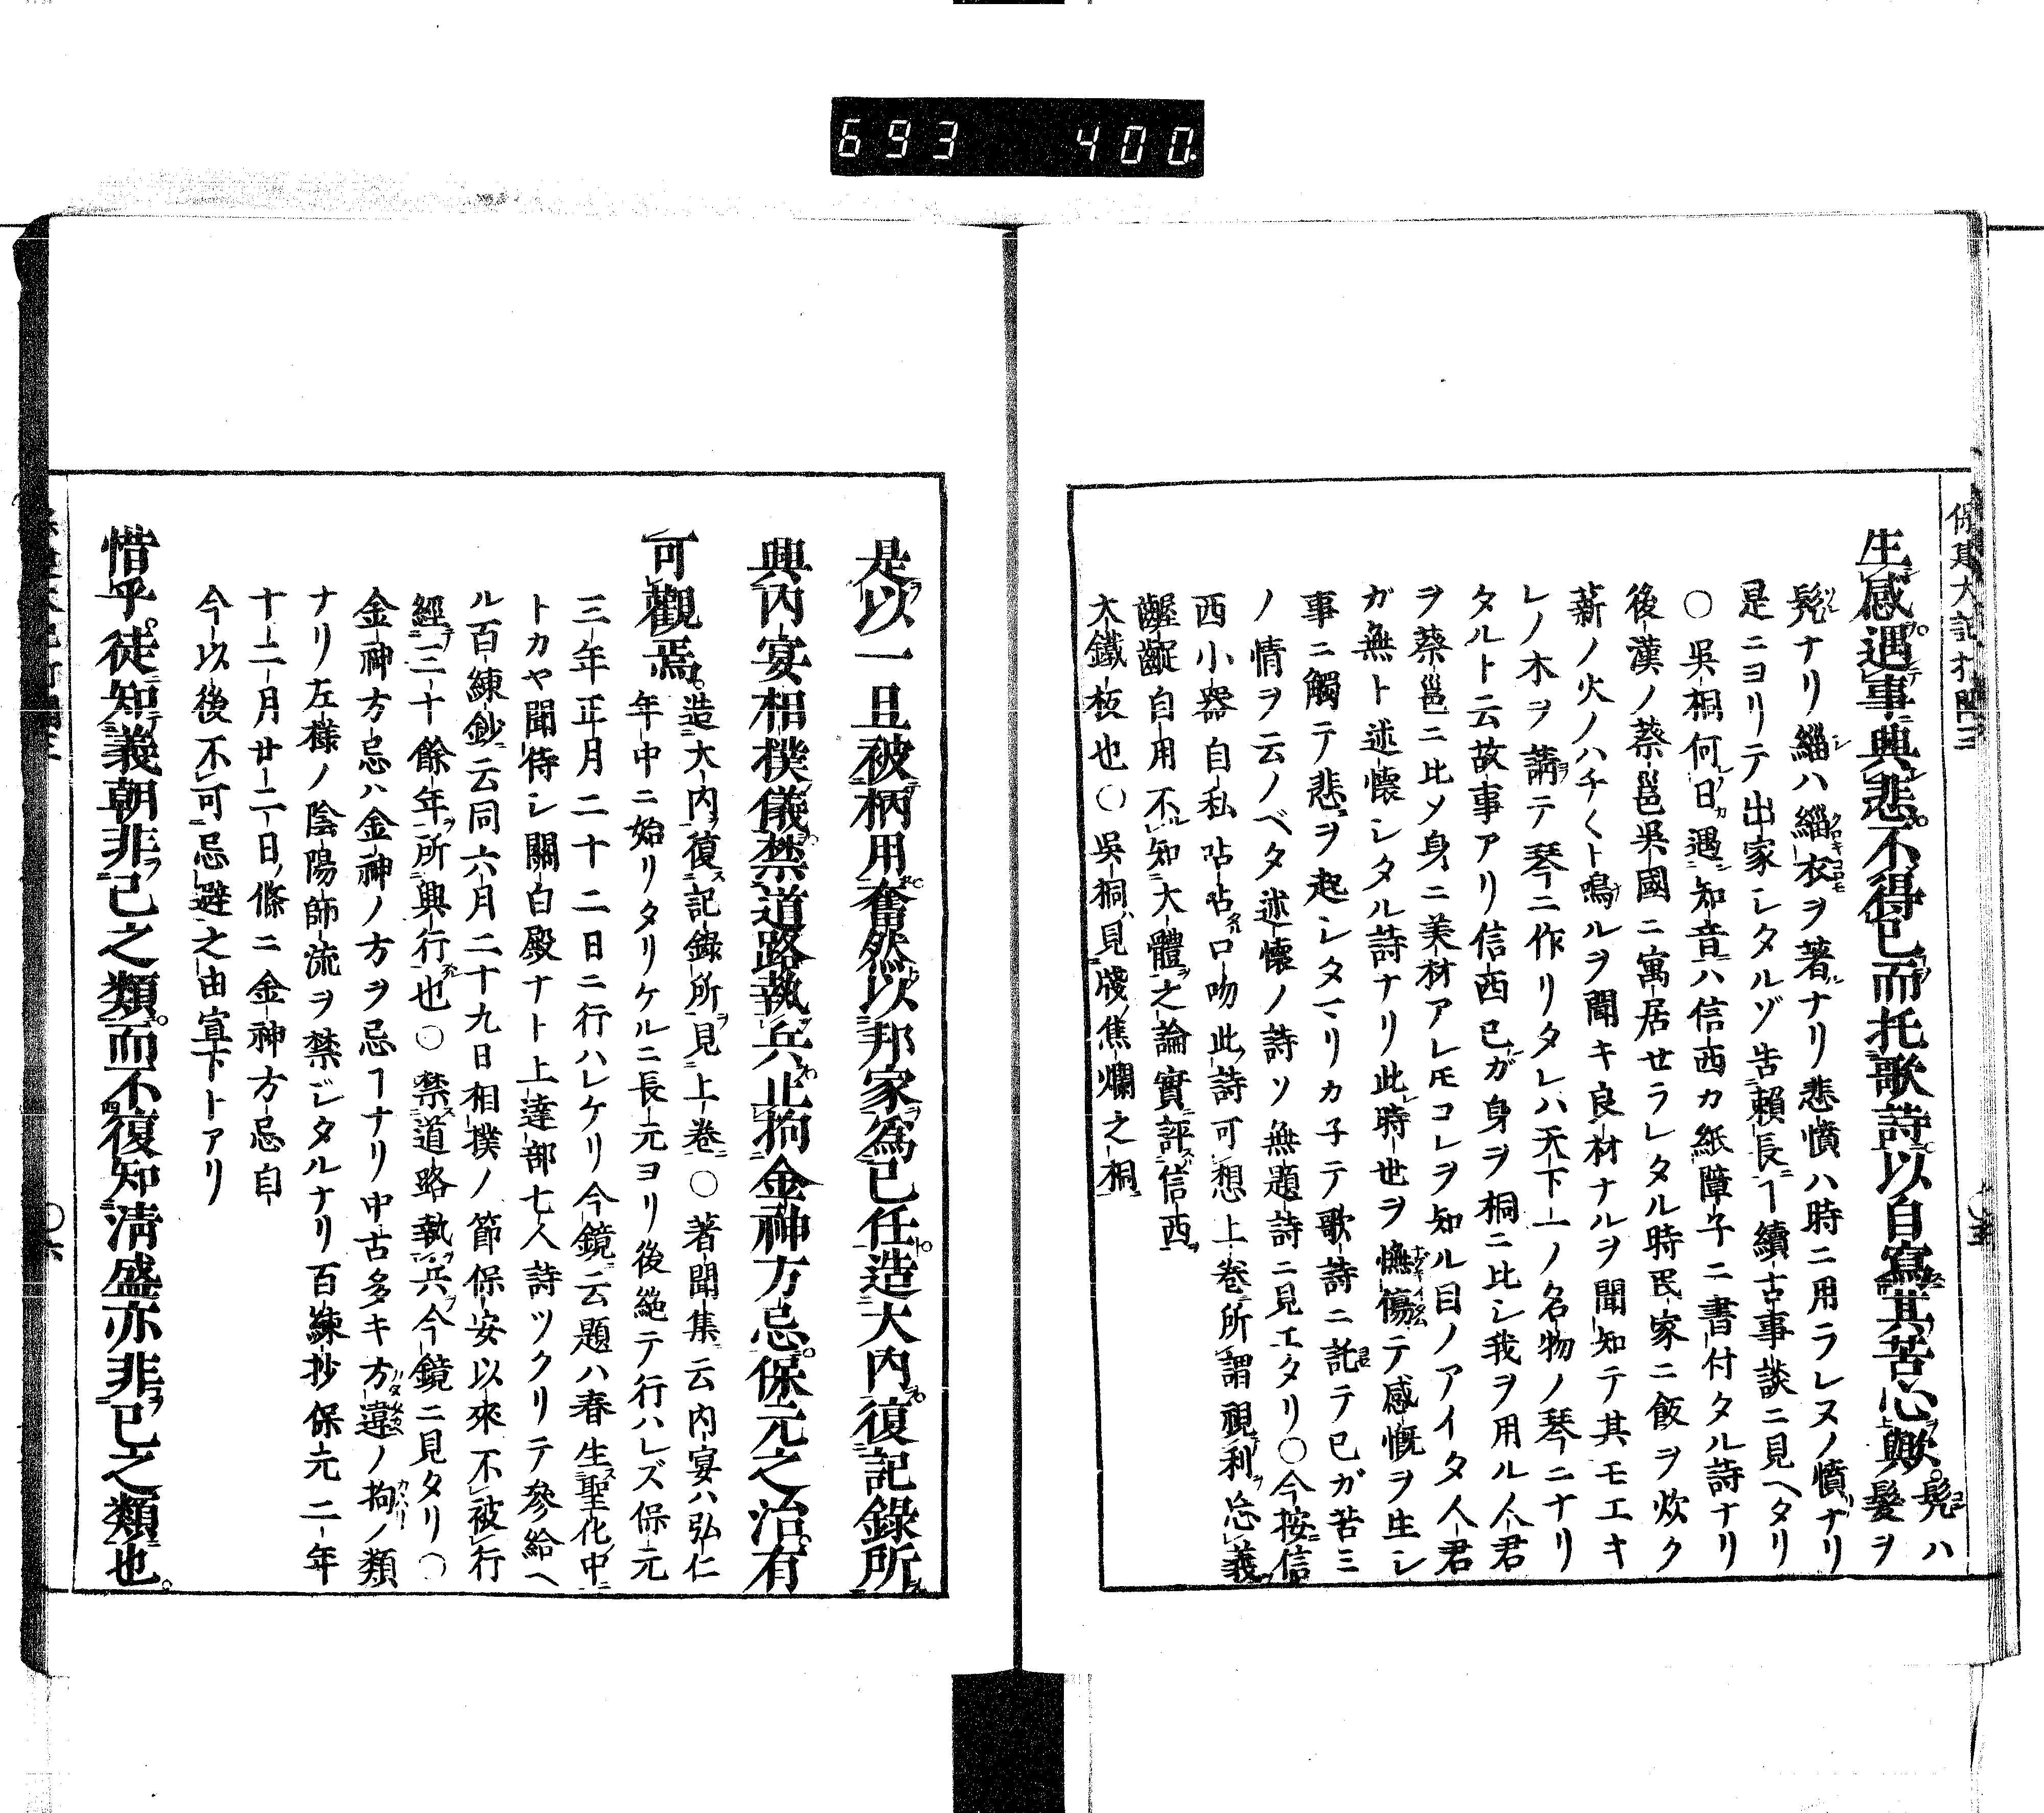 693 400.
保建大記打聞三
生感遇事興悲不得已而托歌詩以自寫其苦心歟
髡ハ髮ヲ
髡ナリ緇ハ緇衣ヲ著ナリ悲憤ハ時ニ用ラレヌノ憤ナリ
是ニヨリテ出家シタルゾ告賴長ヿ續古事談ニ見ヘタリ
○吳桐何日遇知音ハ信西カ紙障子ニ書付タル詩ナリ
後漢ノ蔡邕吳國ニ寓居セラレタル時民家ニ飯ヲ炊ク
薪ノ火ノハチ〱ト鳴ルヲ聞キ良材ナルヲ聞知テ其モエキ
レノ木ヲ請テ琴ニ作リタレハ天下一ノ名物ノ琴ニナリ
タルト云故事アリ信西已ガ身ヲ桐ニ比シ我ヲ用ル人君
ヲ蔡邕ニ比メ身ニ美材アレ𪜈コレヲ知ル目ノアイタ人君
ガ無ト述懷シタル詩ナリ此時世ヲ憮傷テ感慨ヲ生シ
事ニ觸テ悲ヲ起シタマリカ子テ歌詩ニ託テ已ガ苦ミ
ノ情ヲ云ノベタ述懷ノ詩ソ無題詩ニ見エタリ○今按信
西小器自私呫呫口吻此詩可想上卷所謂視利忘義
齷齪自用不知大體之論實評信西
大鐵板也○吳桐見殘焦爛之桐
是以一旦被柄用奮然以邦家爲已任造大內復記錄所
興內宴相撲儀禁道路執兵止拘金神方忌保元之治有
可觀焉
造大內復記錄所見上卷○著聞集云內宴ハ弘仁
年中ニ始リタリケルニ長元ヨリ後絕テ行ハレズ保元
三年正月二十二日ニ行ハレケリ今鏡云題ハ春生聖化中
トカヤ聞侍シ關白殿ナト上達部七人詩ツクリテ參給ヘ
ル百練鈔云同六月二十九日相撲ノ節保安以來不被行
經三十餘年所興行也○禁道路執兵今鏡ニ見タリ○
金神方忌ハ金神ノ方ヲ忌ヿナリ中古多キ方違ノ拘ノ類
ナリ左樣ノ陰陽師流ヲ禁ジタルナリ百練抄保元二年
十二月廿二日條ニ金神方忌自
今以後不可忌避之由宣下トアリ
惜乎徒知義朝非已之類而不復知淸盛亦非已之類也